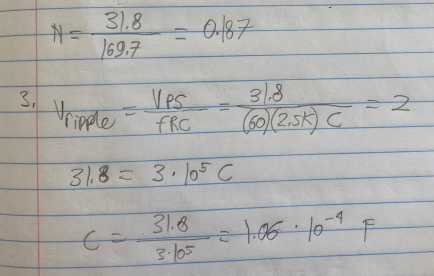 N = 31.8 / 169.7 = 0.187
3. Vripple = VPS / fRC = 31.8 / (60)(2.5K) C = 2
31.8 = 3 · 10⁵ C
C = 31.8 / 3·10⁵ = 1.06 · 10⁻⁴ F